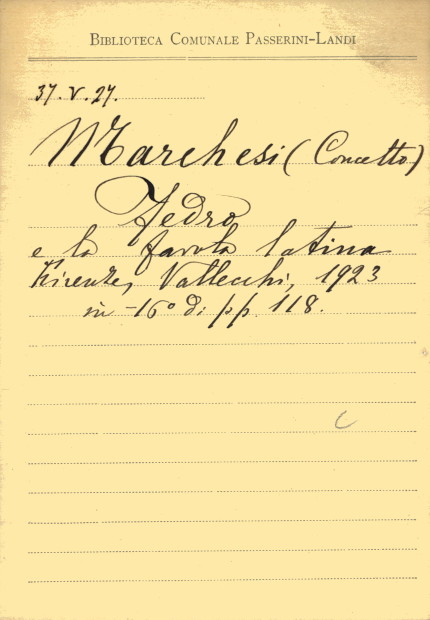 BIBLIOTECA COMUNALE PASSERINI-LANDI
37.V.27.
Marchesi (Concetto)
Fedro
e la favola latina
Firenze, Vallecchi, 1923
in-16° di pp. 118.
C